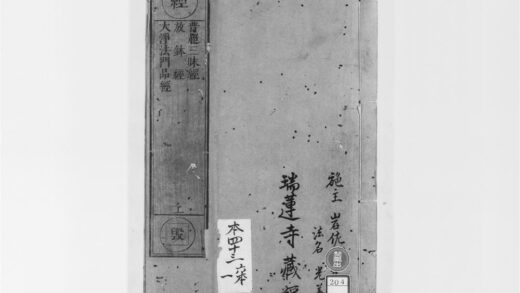 施主 岩佐
法名 光
瑞蓮寺藏經
204
本四十三
一
經
普超三昧經
放鉢經
大淨法門品經